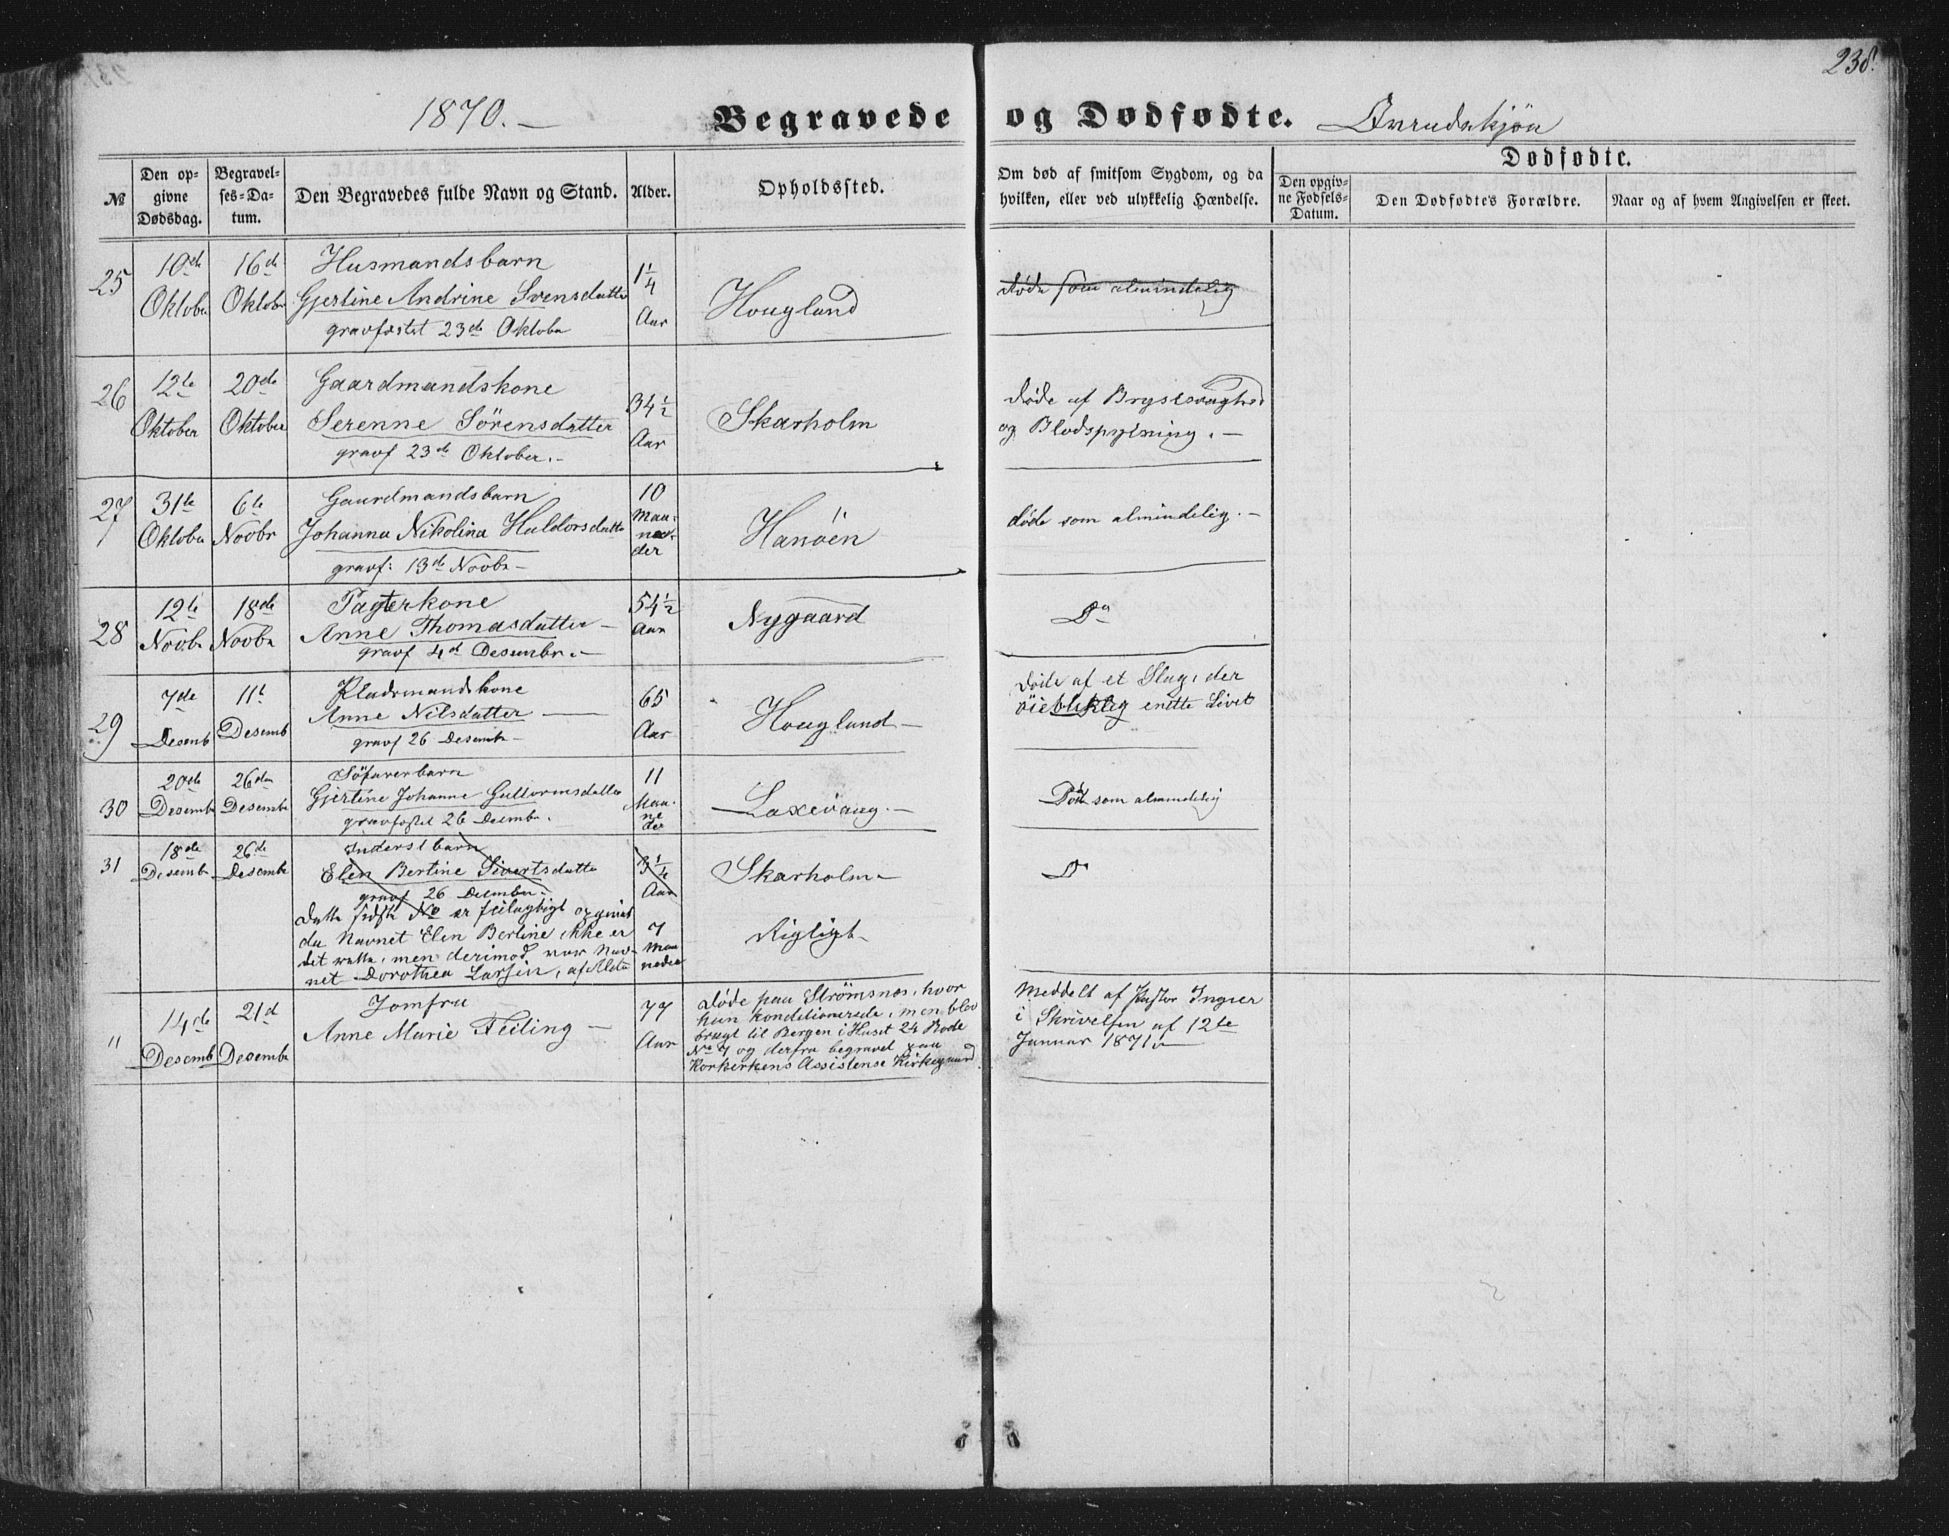 238.
1870. — Begravede og Dødfødte. Qvindekjøn
№
Den opgivne Dødsdag.
Begravelses-Datum.
Den Begravedes fulde Navn og Stand.
Alder.
Opholdssted.
Om død af smitsom Sygdom, og da hvilken, eller ved ulykkelig Hændelse.
Dødfødte.
Den opgivne Fødsels-Datum.
Den Dødfødte's Forældre.
Naar og af hvem Angivelsen er skeet.
25
10de Oktobr
16d Oktobr
Husmandsbarn
Gjertine Andrine Svensdatter
gravfæstet 23de Oktobr
1 1/4 Aar
Hougland
døde som almindelig
26
12te Oktober
20de Oktober
Gaardmandskone
Serenne Sörensdatter
gravf 23de Oktober. —
34 1/2 Aar
Skarholm
døde af Brystsvaghed
og Blodspytning. —
27
31te Oktobr
6te Novbr
Gaardmandsbarn
Johanna Nikolina Haldorsdatter
gravf: 13de Novbr —
10 Maaneder
Hanöen
døde som almindelig. —
28
12te Novbr
18de Novbr
Pagterkone
Anne Thomasdatter —
gravf 4d Desembr. —
54 1/2 Aar
Nygaard
Do
29
7de Desemb
11t Desemb
Anne Nilsdatter —
gravf 26 Desembr —
65 Aar
Hougland —
døde af et Slag, der
öiebliklig endte Livet
30
20de Desembr
26de Desembr
Söfarerbarn
Gjertine Johanne Guttormsdatter
gravfæstet 26 Desembr.
11 Maaneder
Laxevaag. —
Död som almindelig
31
18de Desembr
26de Desembr
Inderstbarn
Elen Bertine Sivertsdatter
gravf 26 Desember.
3 1/4 Aar
Skarholm —
Do
Dette sidste No er feilagtigt opgivet
da Navnet Elen Bertine ikke er
det rette, men derimod var Nav-
net Dorothea Larsen, af Alder
7 Maaneder
Rigligt —
"
14de Desemb
21d Desembr
Jomfru
Anne Marie Feiling —
77 Aar
Døde paa Strömsnes, hvor
hun konditionerede, men blev
bragt til Bergen i Huset 24 Rode
No 7 og derfra begravet paa
Korkirkens Assistense Kirkegaard.
Meddelt af Pastor Ingier
i Skrivelsen af 12te
Januar 1871. —